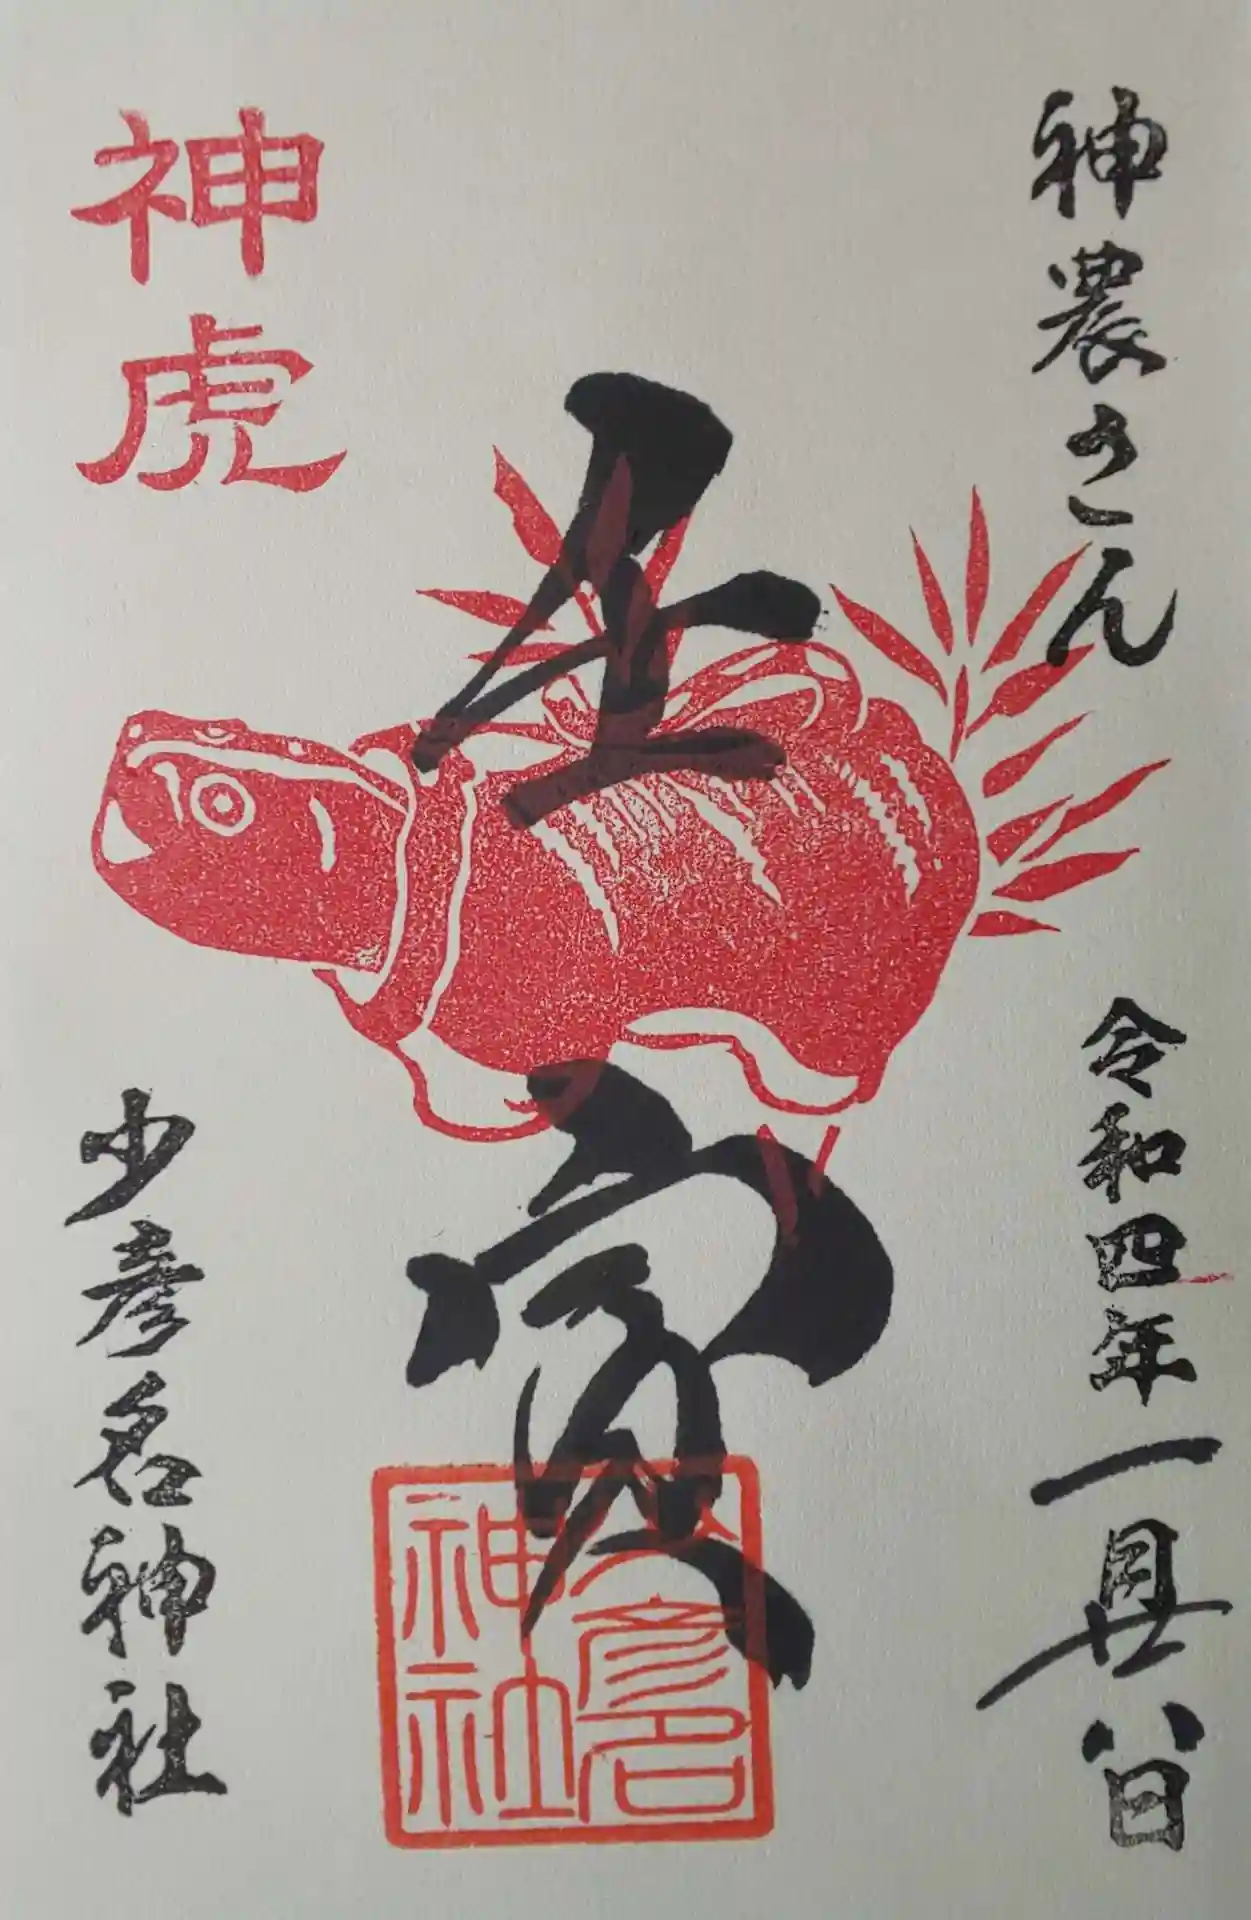 神農さん
令和四年一月廿八日
壬寅
少彦名
神社
神虎
少彦名神社